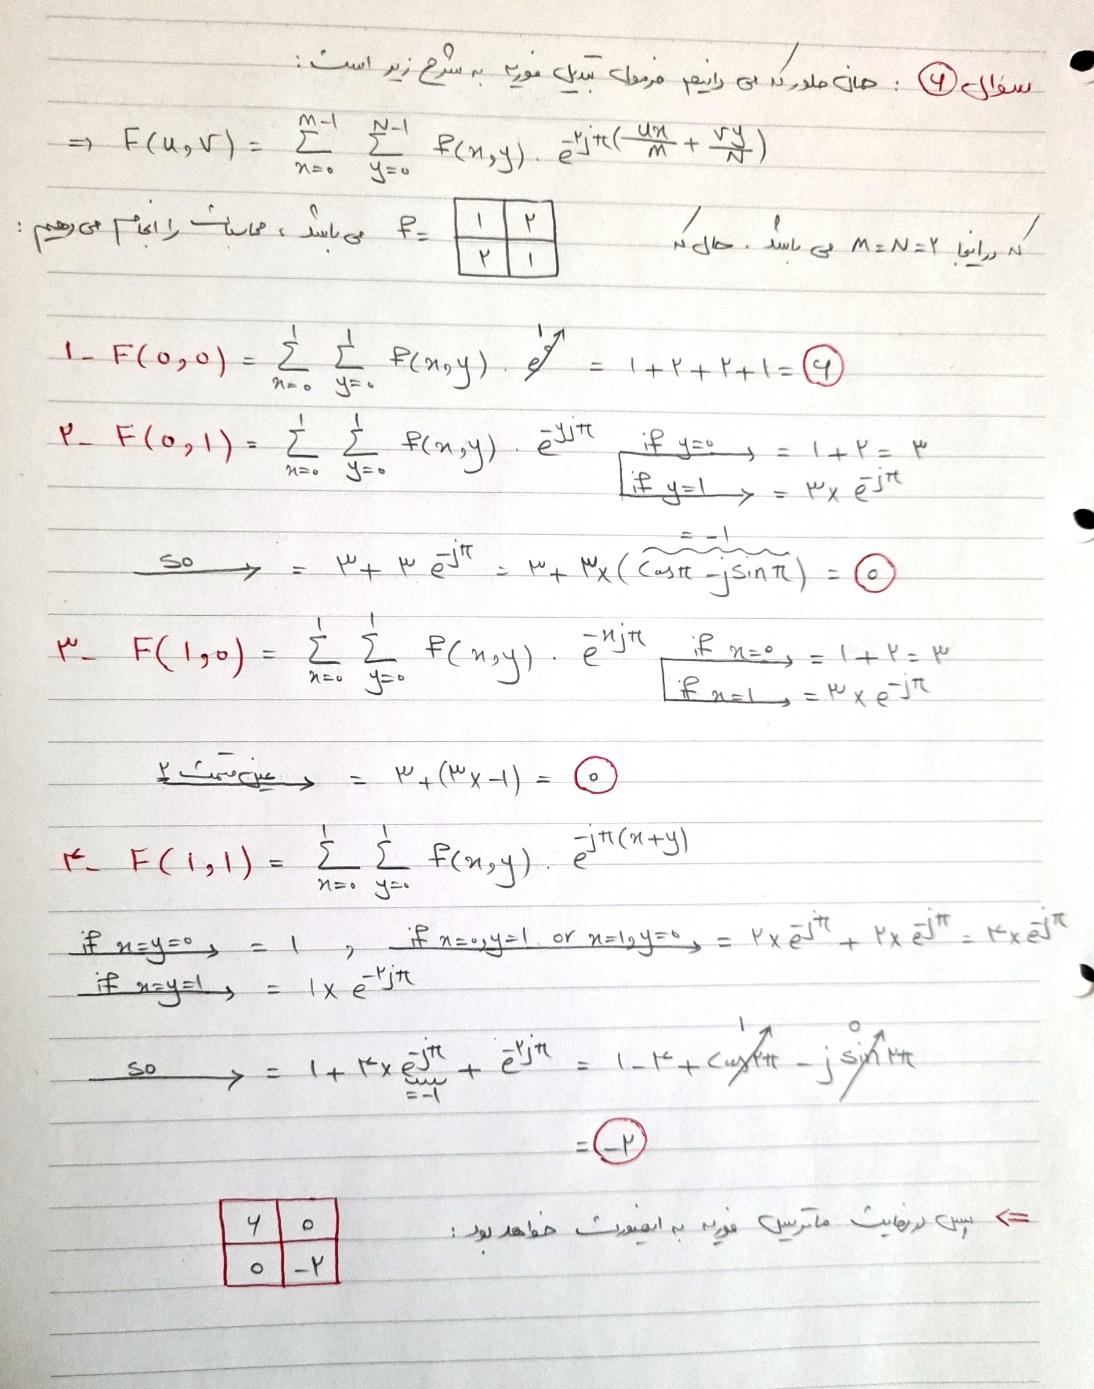 سؤال ۶ : همان طور که می دانیم فرمول تبدیل فوریه به شرح زیر است :
⇒ F(u,v) = Σ_{x=0}^{M-1} Σ_{y=0}^{N-1} f(x,y) . e^{-۲jπ(ux/M + vy/N)}
که در اینجا M=N=۲ می باشد . حال که f= می باشد ، محاسبات را انجام می دهیم :
۱ ۲
۲ ۱
۱- F(0,0) = Σ_{x=0}^{1} Σ_{y=0}^{1} f(x,y) . e^0 1 = ۱+۲+۲+۱ = ۶
۲- F(0,1) = Σ_{x=0}^{1} Σ_{y=0}^{1} f(x,y) . e^{-yjπ} if y=0 → = ۱+۲ = ۳
if y=1 → = ۳× e^{-jπ}
so → = ۳+ ۳ e^{-jπ} = ۳+ ۳×(cosπ - jsinπ) = 0
= -1
۳- F(1,0) = Σ_{x=0}^{1} Σ_{y=0}^{1} f(x,y) . e^{-xjπ} if x=0 → = ۱+۲ = ۳
if x=1 → = ۳× e^{-jπ}
عین قسمت ۲ → = ۳+(۳×-۱) = 0
۴- F(1,1) = Σ_{x=0}^{1} Σ_{y=0}^{1} f(x,y) . e^{-jπ(x+y)}
if x=y=0 → = 1 , if x=0,y=1 or x=1,y=0 → = ۲×e^{-jπ} + ۲×e^{-jπ} = ۴×e^{-jπ}
if x=y=1 → = 1× e^{-۲jπ}
so → = 1+ ۴×e^{-jπ} + e^{-۲jπ} = 1-۴+ cos۲π - j sin۲π
= -1 1 0
= -۲
⇐ پس در نهایت ماتریس فوریه به اینصورت خواهد بود :
۶ 0
0 -۲